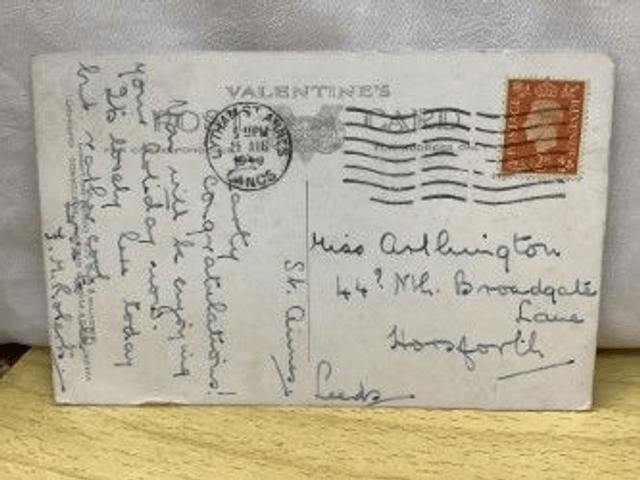 VALENTINE'S
POST CARD
LYTHAM ST. ANNES
5-PM
AUG
LANCS
St. Annes
Hearty
Congratulations!
You will be enjoying
your holiday now.
It's lovely here today
but rather cool
J. M. Roberts
Miss Arthington
44 Nth. Broadgate
Lane
Horsforth
Leeds